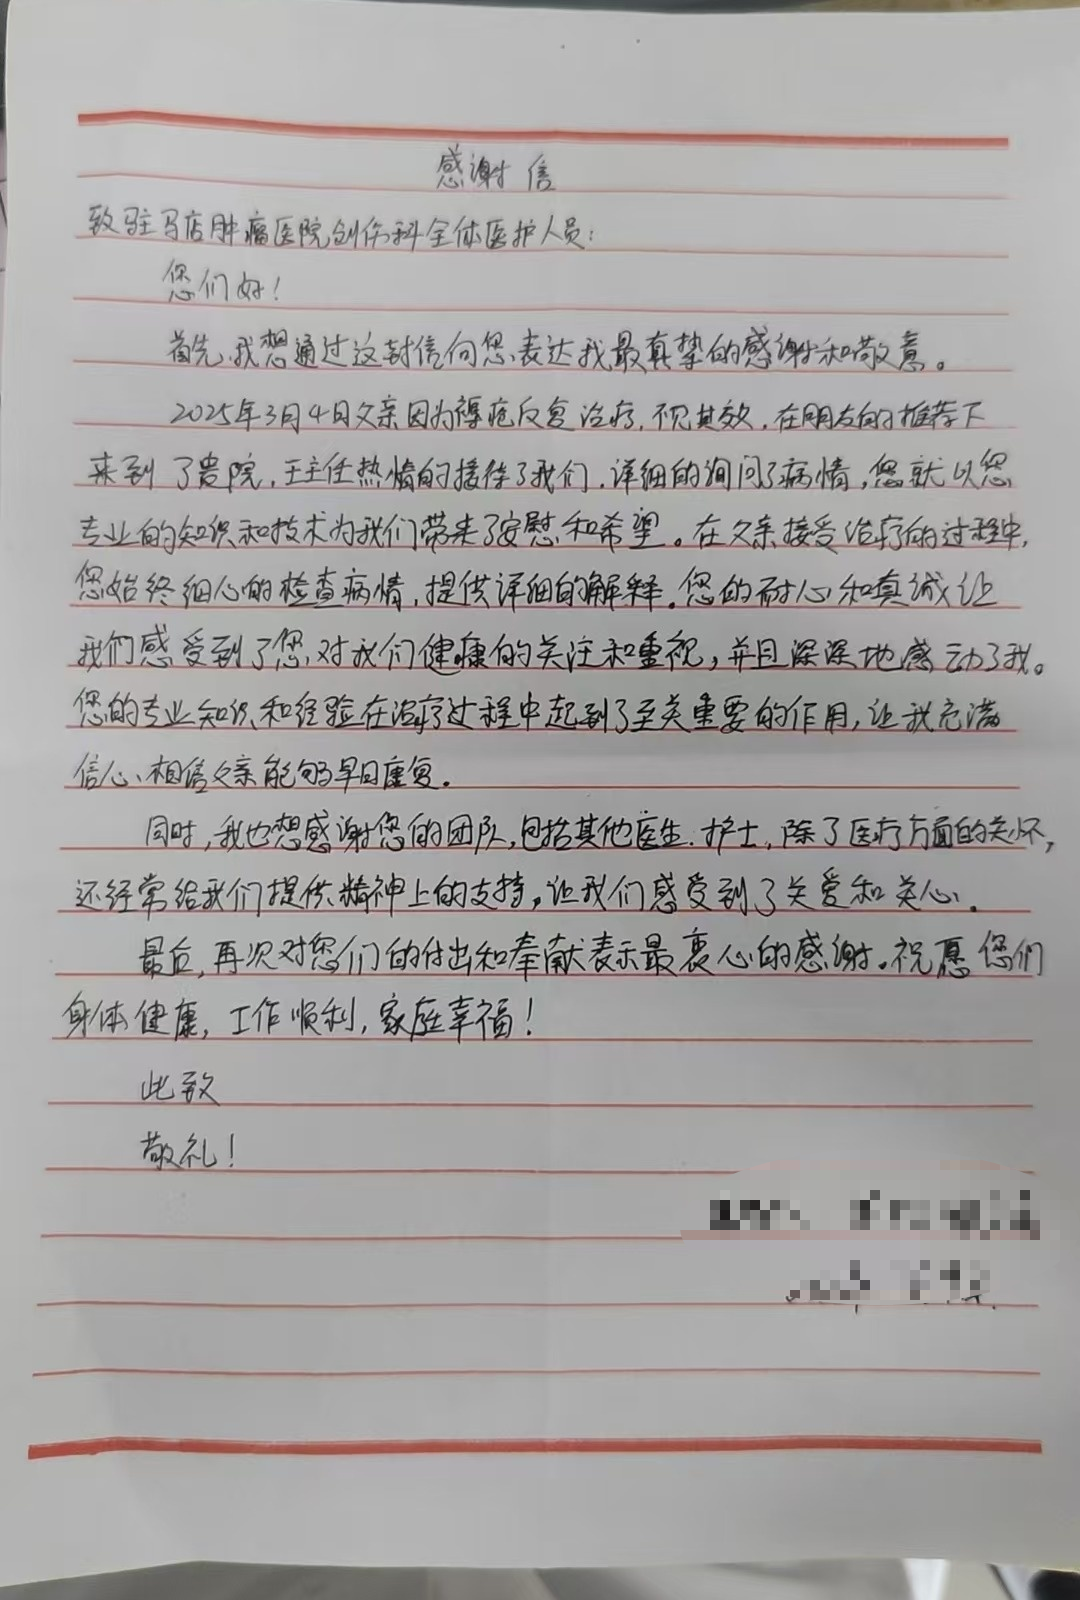 感谢信
致驻马店肿瘤医院创伤科全体医护人员：
您们好！
首先，我想通过这封信向您表达我最真挚的感谢和敬意。
2025年3月4日父亲因为褥疮反复治疗，不见其效，在朋友的推荐下
来到了贵院，王主任热情的接待了我们，详细的询问了病情，您就以您
专业的知识和技术为我们带来了安慰和希望。在父亲接受治疗的过程中，
您始终细心的检查病情，提供详细的解释。您的耐心和真诚让
我们感受到了您对我们健康的关注和重视，并且深深地感动了我。
您的专业知识和经验在治疗过程中起到了至关重要的作用，让我充满
信心、相信父亲能够早日康复。
同时，我也想感谢您的团队，包括其他医生、护士，除了医疗方面的关怀，
还经常给我们提供精神上的支持，让我们感受到了关爱和关心。
最后，再次对您们的付出和奉献表示最衷心的感谢。祝愿您们
身体健康，工作顺利，家庭幸福！
此致
敬礼！